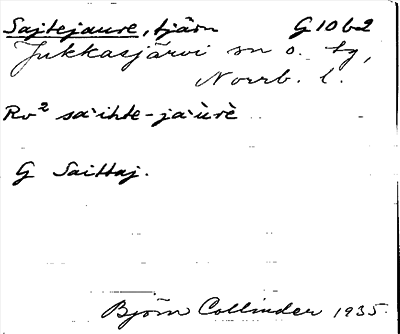 Sajtejaure, tjärn G10b2
Jukkasjärvi sn o. tg,
Norrb. l.
Rv² sa·ihte-ja·ùrè
G Saittaj.
Björn Collinder 1935.